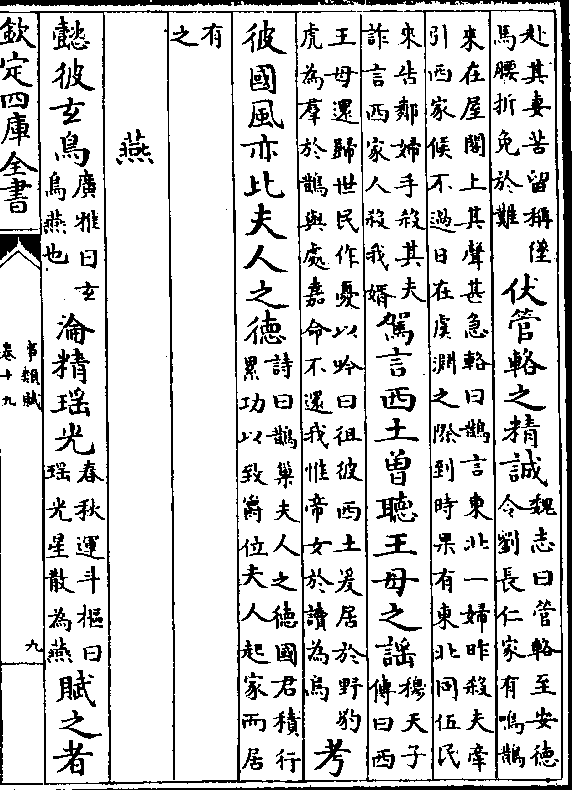 赴其妻苦留稱僅馬腰折免於難伏管輅之精誠魏志曰管輅至安德令劉長仁家有鳴鵲
來在屋閣上其聲甚急輅曰鵲言東北一婦昨殺夫牽引西家候不過日在虞淵之際到時果有東北同伍民
來告鄰婦手殺其夫詐言西家人殺我婿駕言西土曾聽王母之謡穆天子傳曰西
王母還歸世民作憂以吟曰徂彼西土爰居於野豹虎為羣於鵲與處嘉命不還我惟帝女於讀為烏考
彼國風亦比夫人之德詩曰鵲巢夫人之德國君積行累功以致爵位夫人起家而居
有之
燕
懿彼玄鳥廣雅曰玄鳥燕也淪精瑶光春秋運斗樞曰瑶光星散為燕賦之者
欽定四庫全書
事類賦
卷十九
九